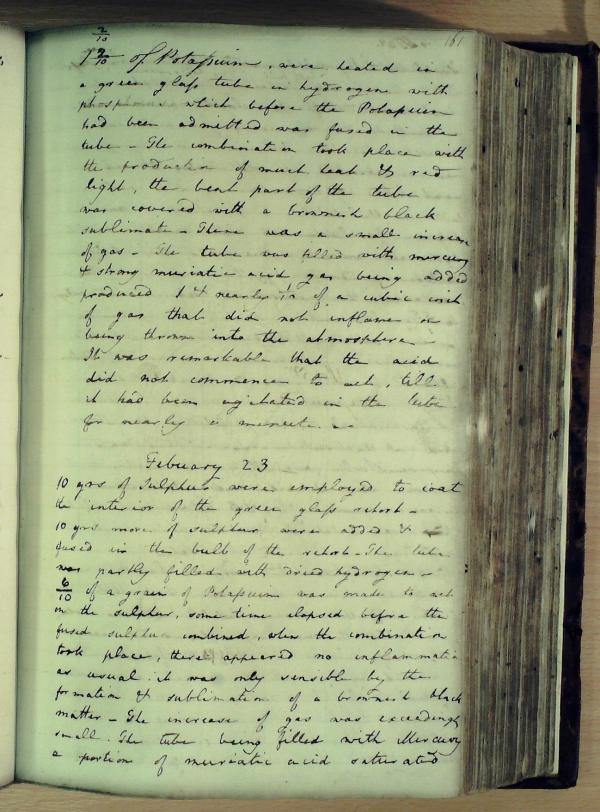 161
2/10
1 2/10 of Potaſsium, were heated in
a green glaſs tube in hydrogen with
phosphorus which before the Potaſsium
had been admitted was fused in the
tube - The combination took place with
the production of much heat & red
light, the bent part of the tube
was covered with a brownish black
sublimate - There was a small increase
of gas - The tube was filled with mercury
& strong muriatic acid gas being added
produced 1 & nearly of a cubic inch
of gas that did not inflame on
being thrown into the atmosphere
It was remarkable that the acid
did not commence to act, till
it has been agitated in the tube
for nearly a minute. -
Febuary 23
10 grs of Sulphur were employed to coat
the interior of the green glaſs retort -
10 grs more of sulphur were added &
fused in the bulb of the retort - The tube
was partly filled with dried hydrogen -
6/10 of a grain of Potaſsium was made to act
on the sulphur, some time elapsed before the
fused sulphur combined, when the combination
took place, there appeared no inflammation
as usual: it was only sensible by the
formation & sublimation of a brownish black
matter - The increase of gas was exceedingly
small. The tube being filled with Mercury
a portion of muriatic acid saturated